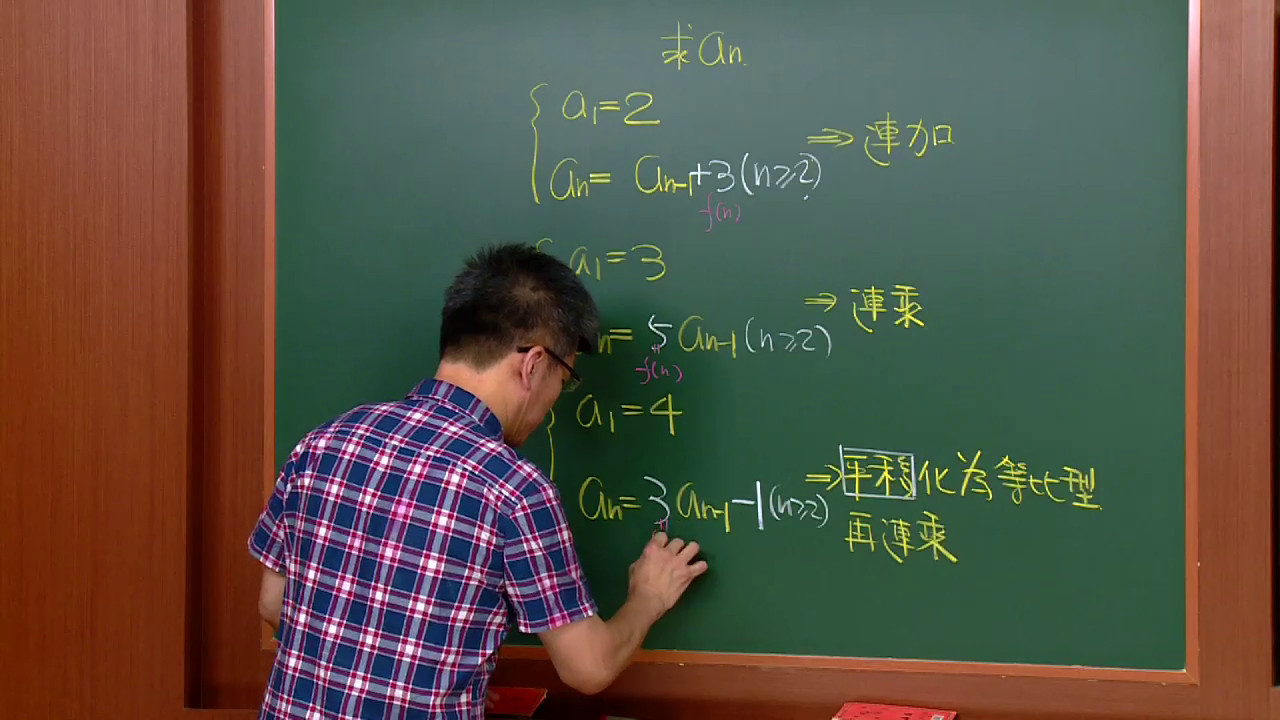 求an
a₁=2
an= an-1+3(n≥2) ⇒ 連加
f(n)
a₁=3
n= 5an-1(n≥2) ⇒ 連乘
f(n)
a₁=4
an=3an-1-1(n≥2) ⇒平移化為等比型
再連乘